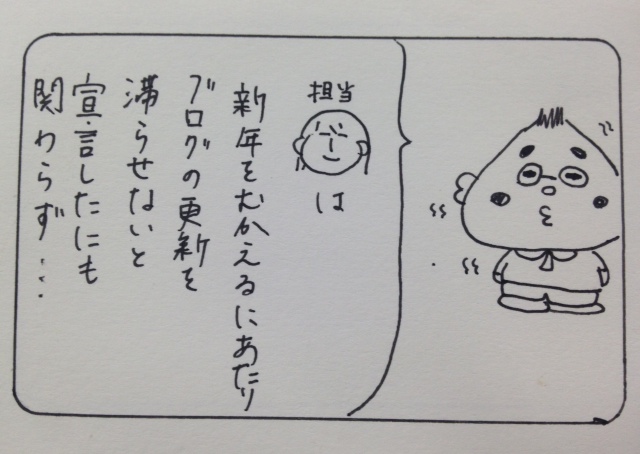 担当
は
新年をむかえるにあたり
ブログの更新を
滞らせないと
宣言したにも
関わらず…